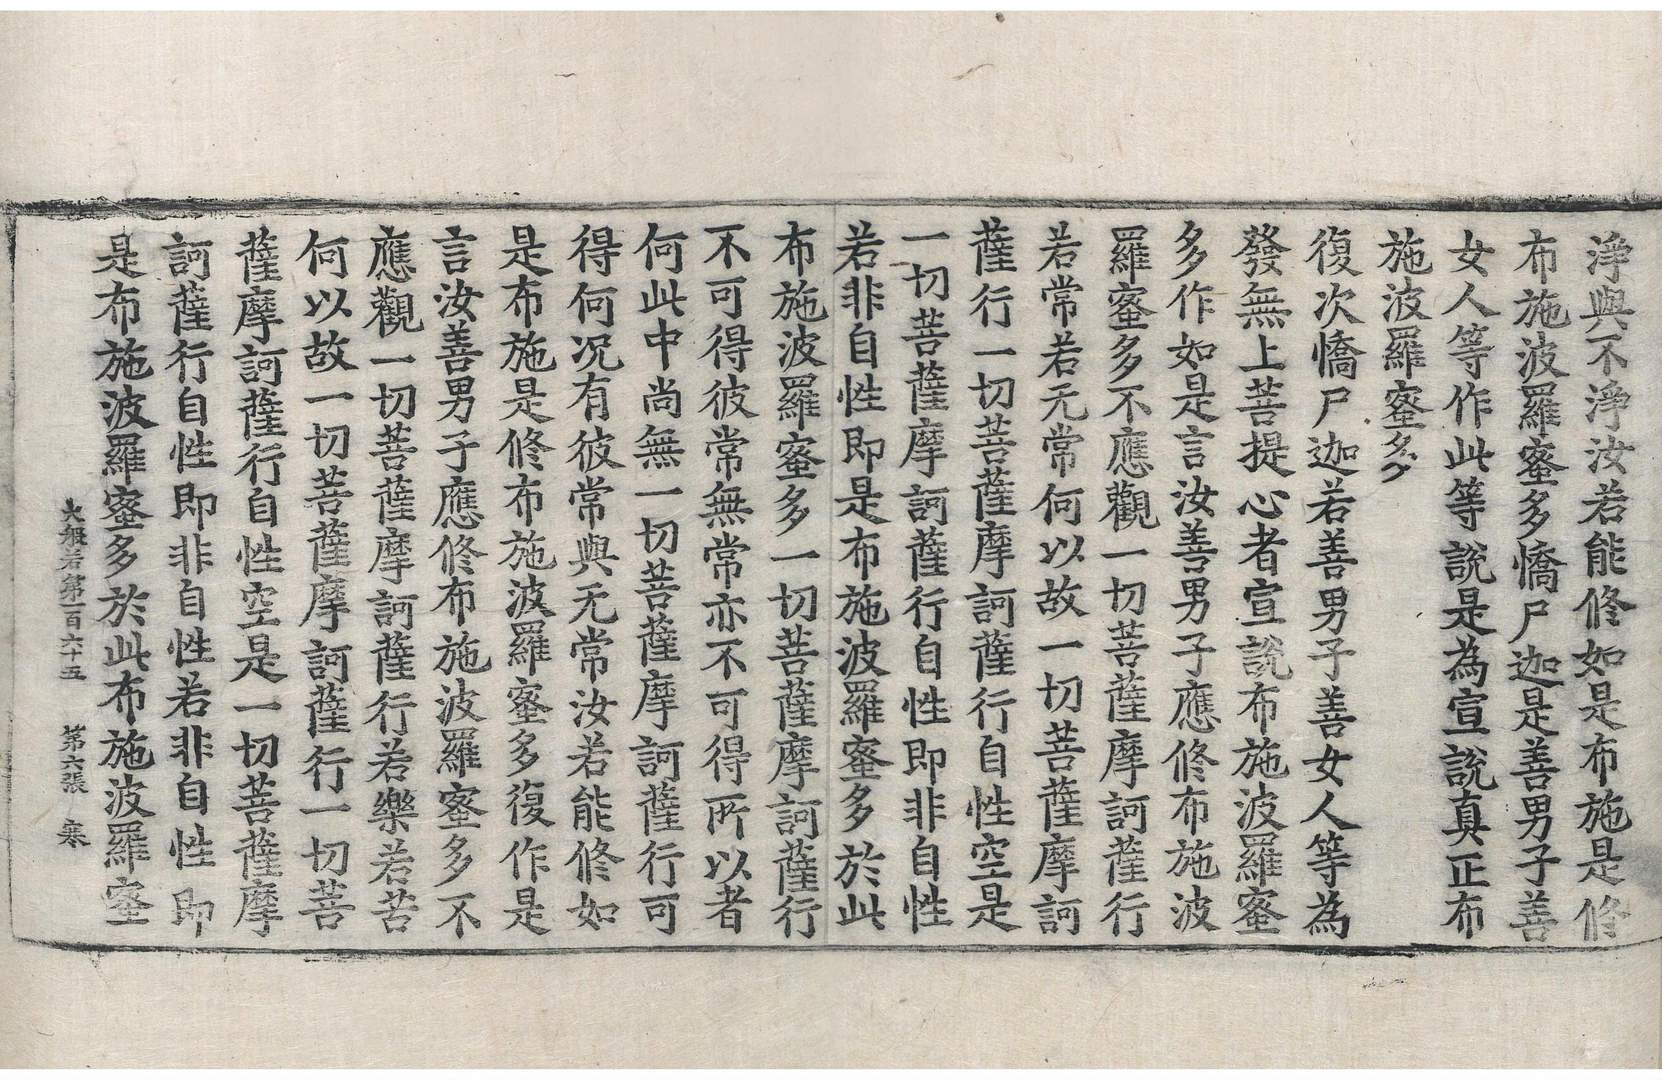 淨與不淨汝若能修如是布施是修
布施波羅蜜多憍尸迦是善男子善
女人等作此等說是為宣說真正布
施波羅蜜多
復次憍尸迦若善男子善女人等為
發無上菩提心者宣說布施波羅蜜
多作如是言汝善男子應修布施波
羅蜜多不應觀一切菩薩摩訶薩行
若常若无常何以故一切菩薩摩訶
薩行一切菩薩摩訶薩行自性空是
一切菩薩摩訶薩行自性即非自性
若非自性即是布施波羅蜜多於此
布施波羅蜜多一切菩薩摩訶薩行
不可得彼常無常亦不可得所以者
何此中尚無一切菩薩摩訶薩行可
得何況有彼常與无常汝若能修如
是布施是修布施波羅蜜多復作是
言汝善男子應修布施波羅蜜多不
應觀一切菩薩摩訶薩行若樂若苦
何以故一切菩薩摩訶薩行一切菩
薩摩訶薩行自性空是一切菩薩摩
訶薩行自性即非自性若非自性即
是布施波羅蜜多於此布施波羅蜜
大般若第一百六十五 第六張 寒